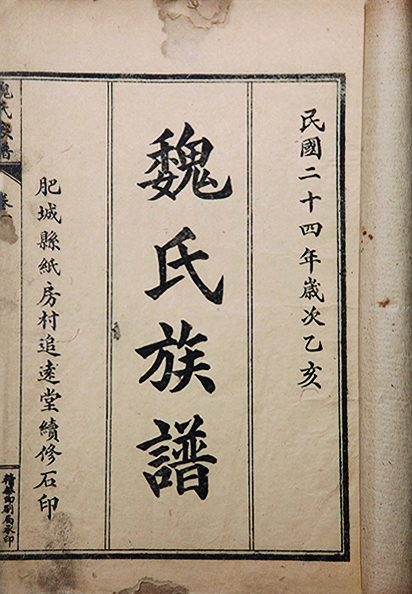 民國二十四年歲次乙亥
魏氏族譜
肥城縣紙房村追遠堂續修石印
魏氏族譜
卷一
印刷局承印